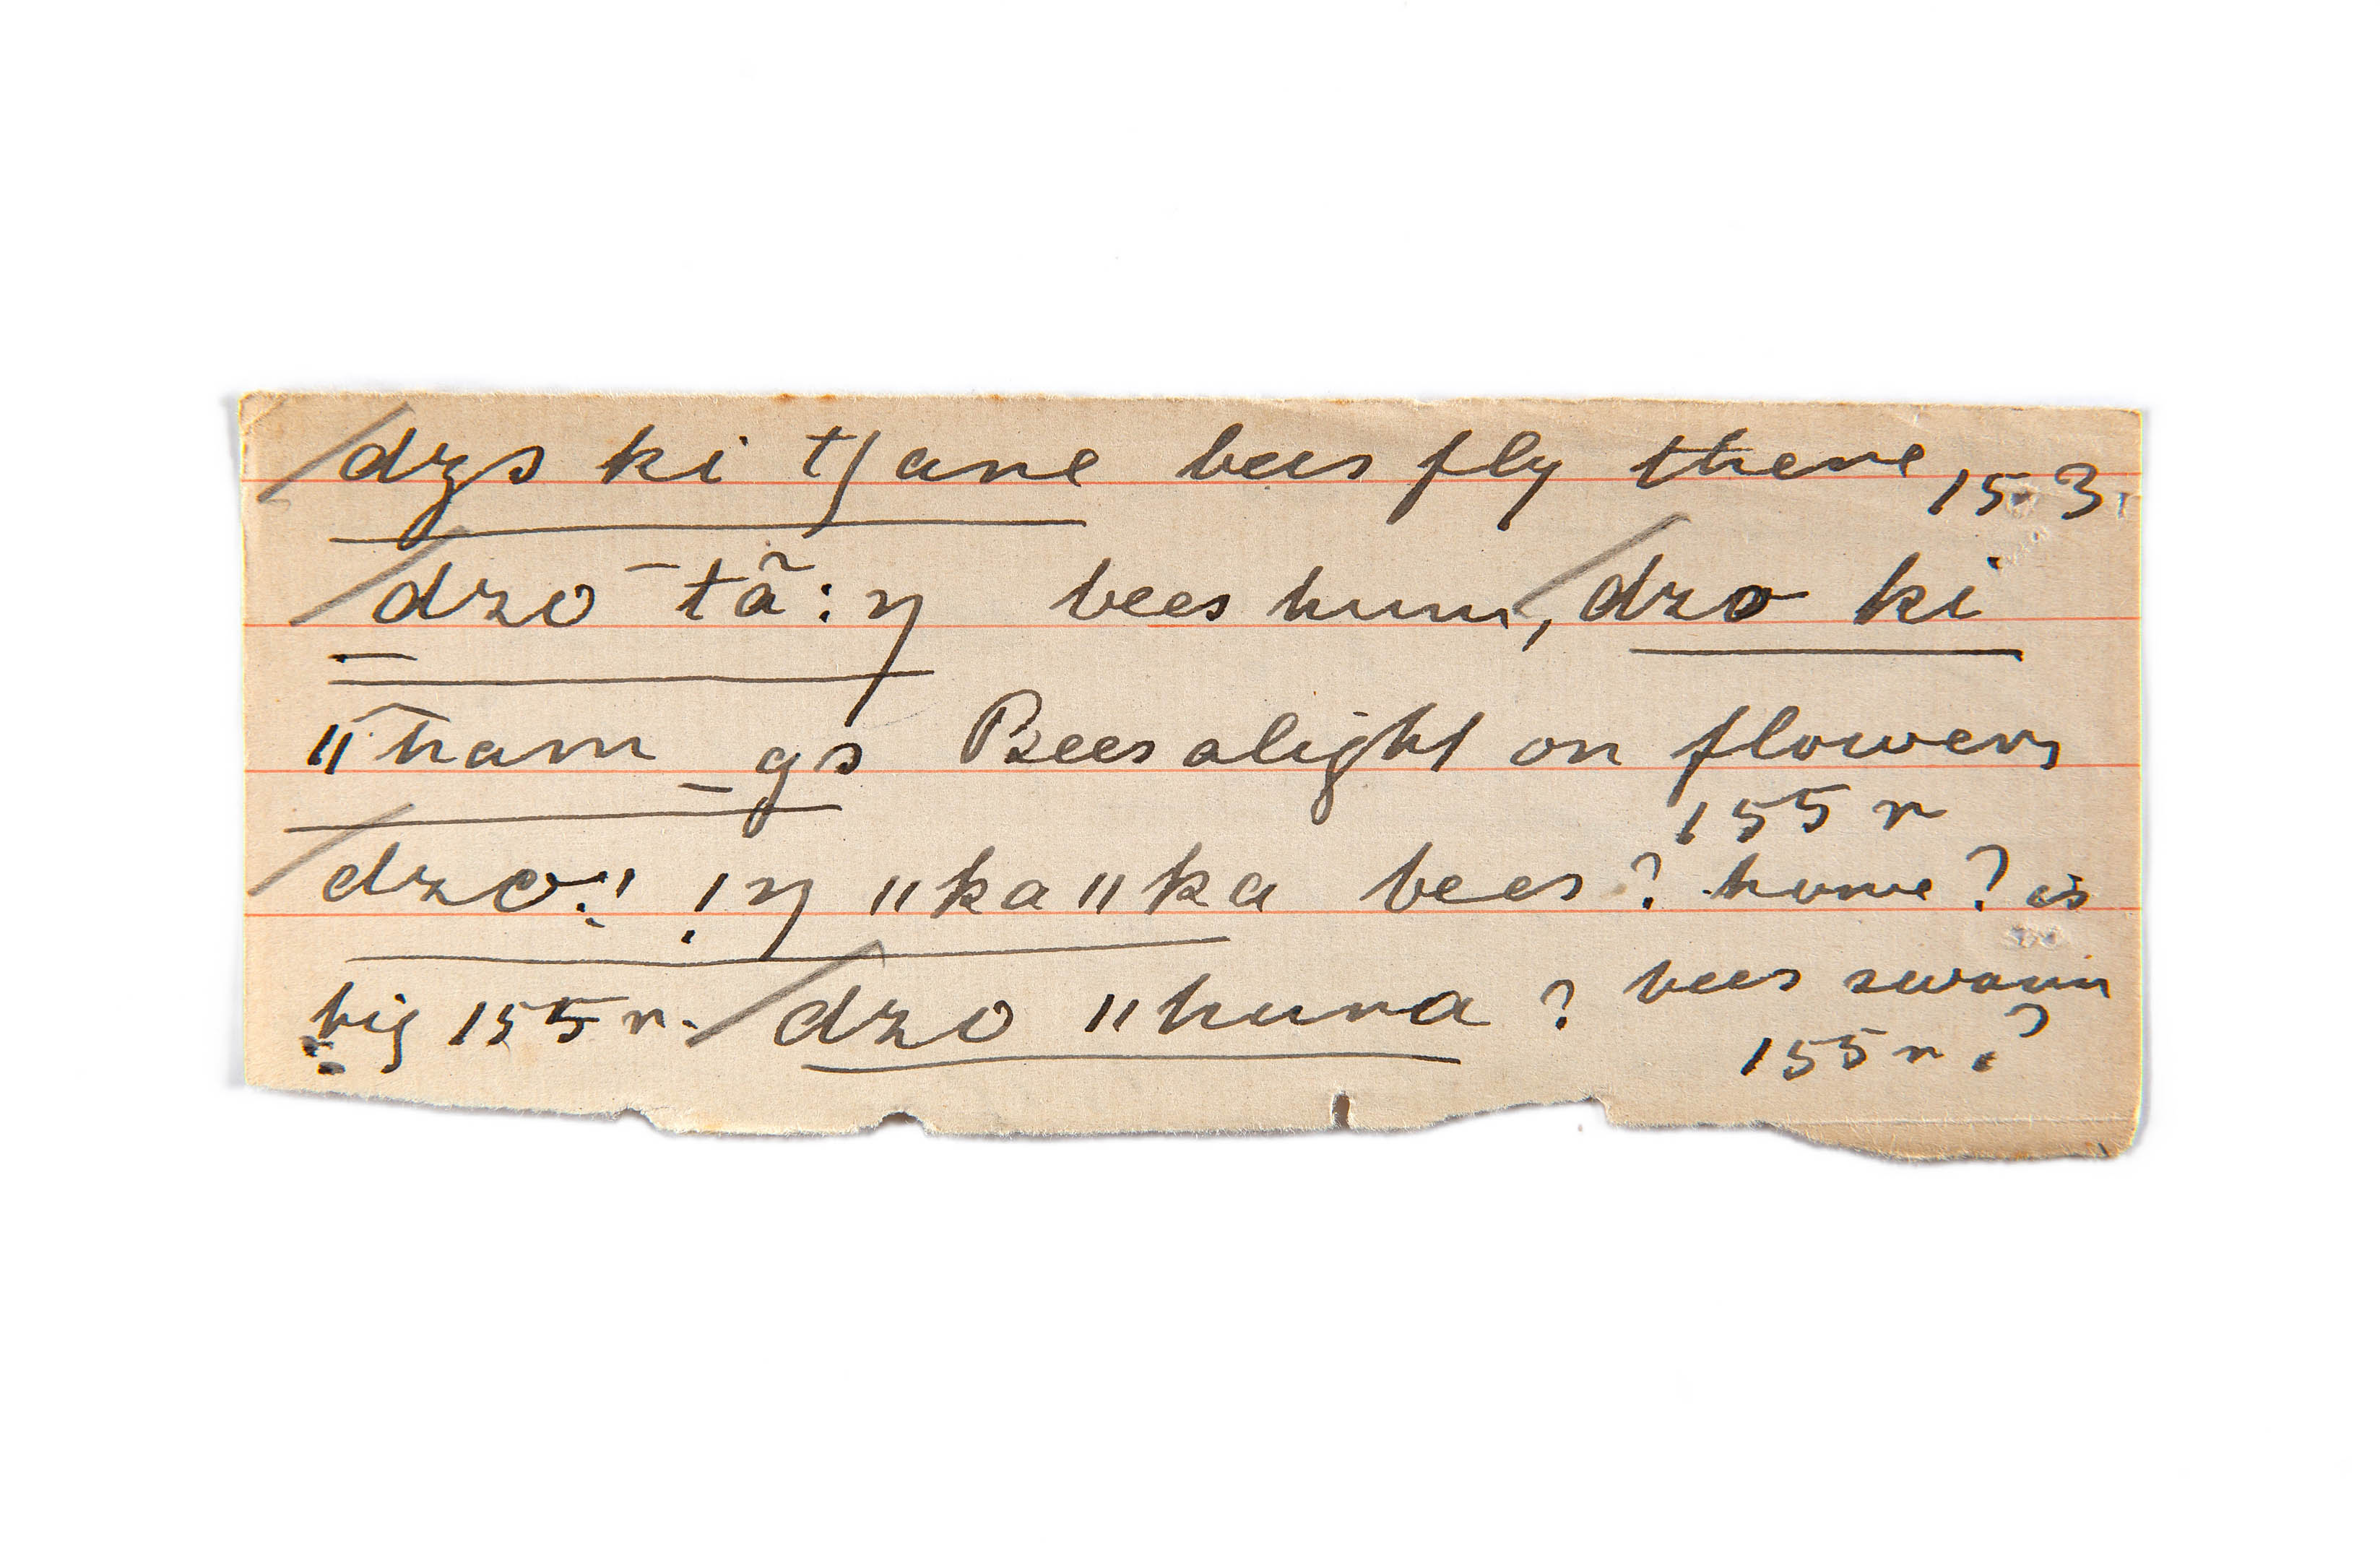 dzs ki tʃane bees fly there, 153.
dzo ¯tã:ŋ bees hum, dzo ki
ǁ¯ham _gs Bees alight on flowers
155 r
dzo:! !ŋ ǁkaǁka bees ? home ? is
big 155 r. dzo ǁhuna ? bees swarm
155 r ?